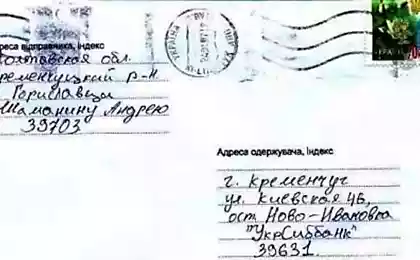 УКРАЇНА
дреса відправника, індекс
олтавская обл.
ременчуцкий р-н
Гориславцы
Шаманину Андрею
39703
Адреса одержувача, індекс
г. Кременчуг
ул. Киевская 4Б,
ост. Ново-Ивановка
"УкрСиббанк"
39631.